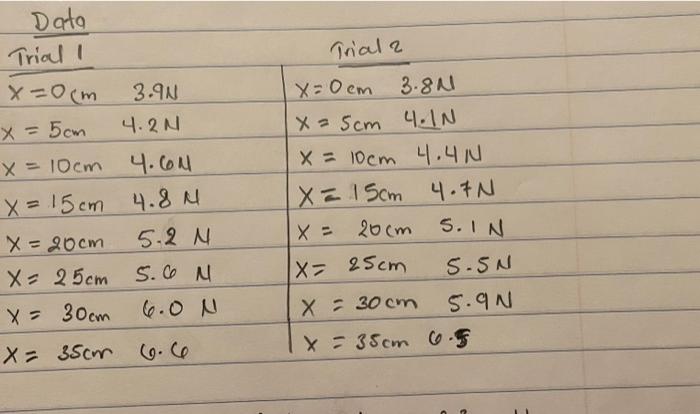 Data
Trial 1
x = 0cm 3.9N
x = 5cm 4.2N
x = 10cm 4.6N
x = 15cm 4.8 N
x = 20cm 5.2 N
x = 25cm 5.6 N
x = 30cm 6.0 N
x = 35cm 6.6
Trial 2
x = 0cm 3.8N
x = 5cm 4.1N
x = 10cm 4.4N
x = 15cm 4.7N
x = 20cm 5.1 N
x = 25cm 5.5N
x = 30cm 5.9N
x = 35cm 6.5